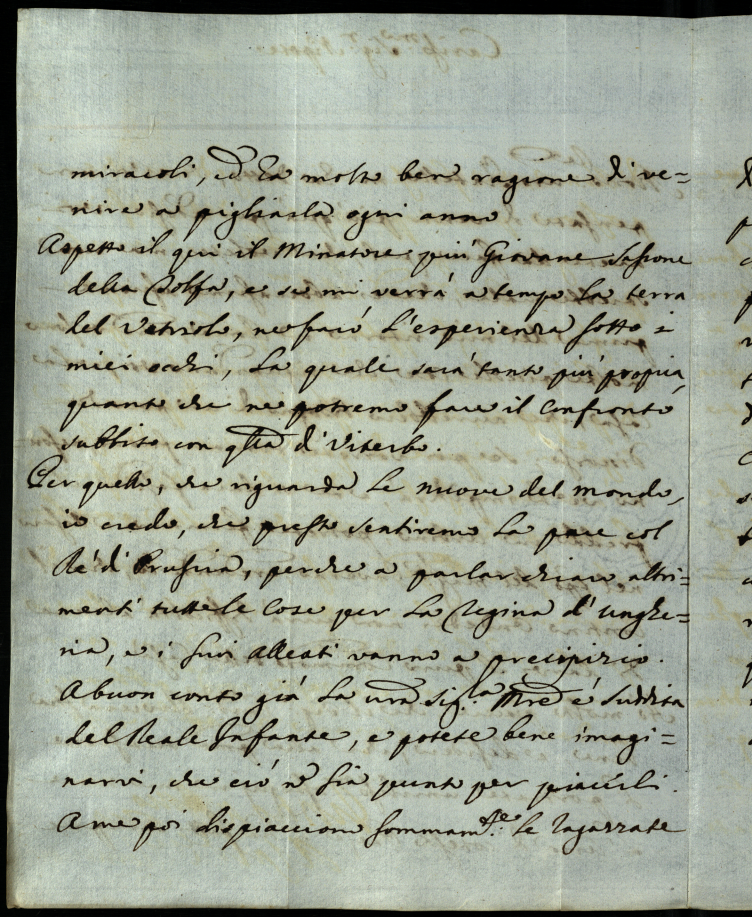 miracoli, ed ha molto ben ragione di ve=
nire a pigliarla ogni anno
Aspetto il qui il Minatore più Giovane Sassone
della Solfa, e se mi verrà a tempo la terra
del Vetriolo, ne farò l'esperienza sotto i
miei occhi, la quale sarà tanto più propria,
quanto che ne potremo fare il Confronto
subbito con qlla di Viterbo.
Per quello, che riguarda le nuove del mondo,
io credo, che presto sentiremo la pace col
Rè di Prussia, perche a parlar chiaro altri=
menti tutte le Cose per la Regina d'Unghe=
ria, e i suoi Alleati vanno a precipizio.
A buon conto già la vra Sig.ra Mre è suddita
del Reale Infante, e potete bene imagi=
narvi, che ciò nō sia punto per piacerli.
A me poi dispiacciono sommamte le ragazzate